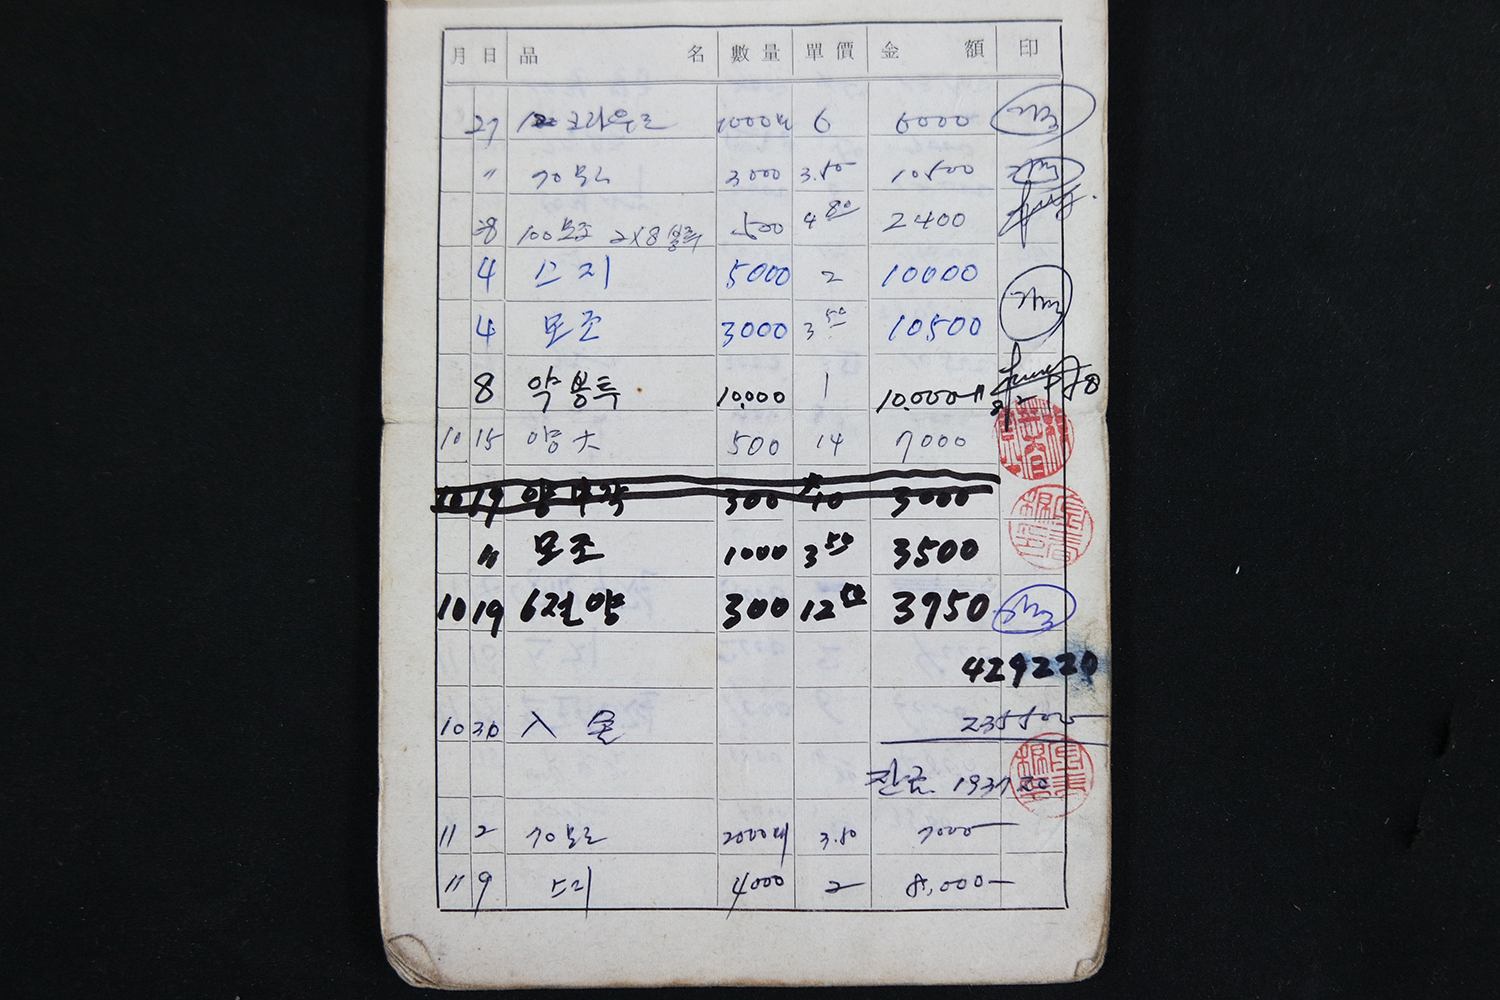 月 日 品 名 數量 單價 金 額 印
27 크라우드 1000 6 6000
〃 70모조 3000 3.50 10500
8 100모조 2X8봉투 500 4 80 2400
4 소지 5000 2 10000
4 모조 3000 3 50 10500
8 약봉투 10,000 1 10,000
10 15 양大 500 14 7000
10 19 양 300 10 3000
〃 모조 1000 3 50 3500
10 19 6절양 300 12 50 3950
429220
10 30 入金 235500
잔금. 193720
11 2 70모조 2000매 3.50 7000
11 9 소지 4000 2 8,000